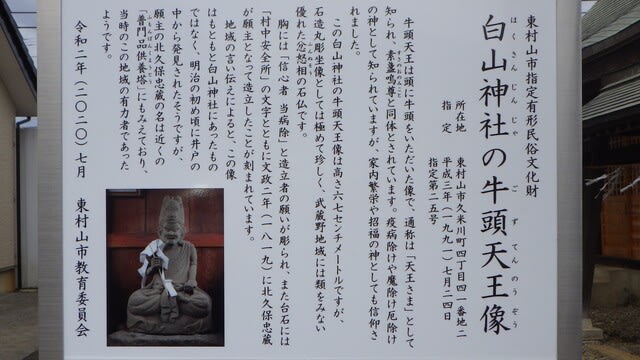 東村山市指定有形民俗文化財
はくさんじんじゃ ごずてんのうぞう
白山神社の牛頭天王像
所在地 東村山市久米川町四丁目四一番地二
指定 平成三年(一九九一)七月二四日
指定第二五号
牛頭天王は頭に牛頭をいただいた像で、通称は「天王さま」として
知られ、素盞嗚尊と同体とされています。疫病除けや魔除け厄除け
の神として知られていますが、家内繁栄や招福の神としても信仰さ
れました。
この白山神社の牛頭天王像は高さ六七センチメートルですが、
石造丸彫坐像としては極めて珍しく、武蔵野地域には類をみない
優れた忿怒相の石仏です。
胸には「信心者 当病除」と造立者の願いが彫られ、また台石には
「村中安全所」の文字とともに文政二年(一八一九)に北久保忠蔵
が願主となって造立したことが刻まれています。
地域の言い伝えによると、この像
はもともと白山神社にあったもの
ではなく、明治の初め頃に井戸の
中から発見されたそうですが、
願主の北久保忠蔵の名は近くの
「普門品供養塔」にもみえており、
当時のこの地域の有力者であった
ようです。
令和二年(二〇二〇)七月 東村山市教育委員会